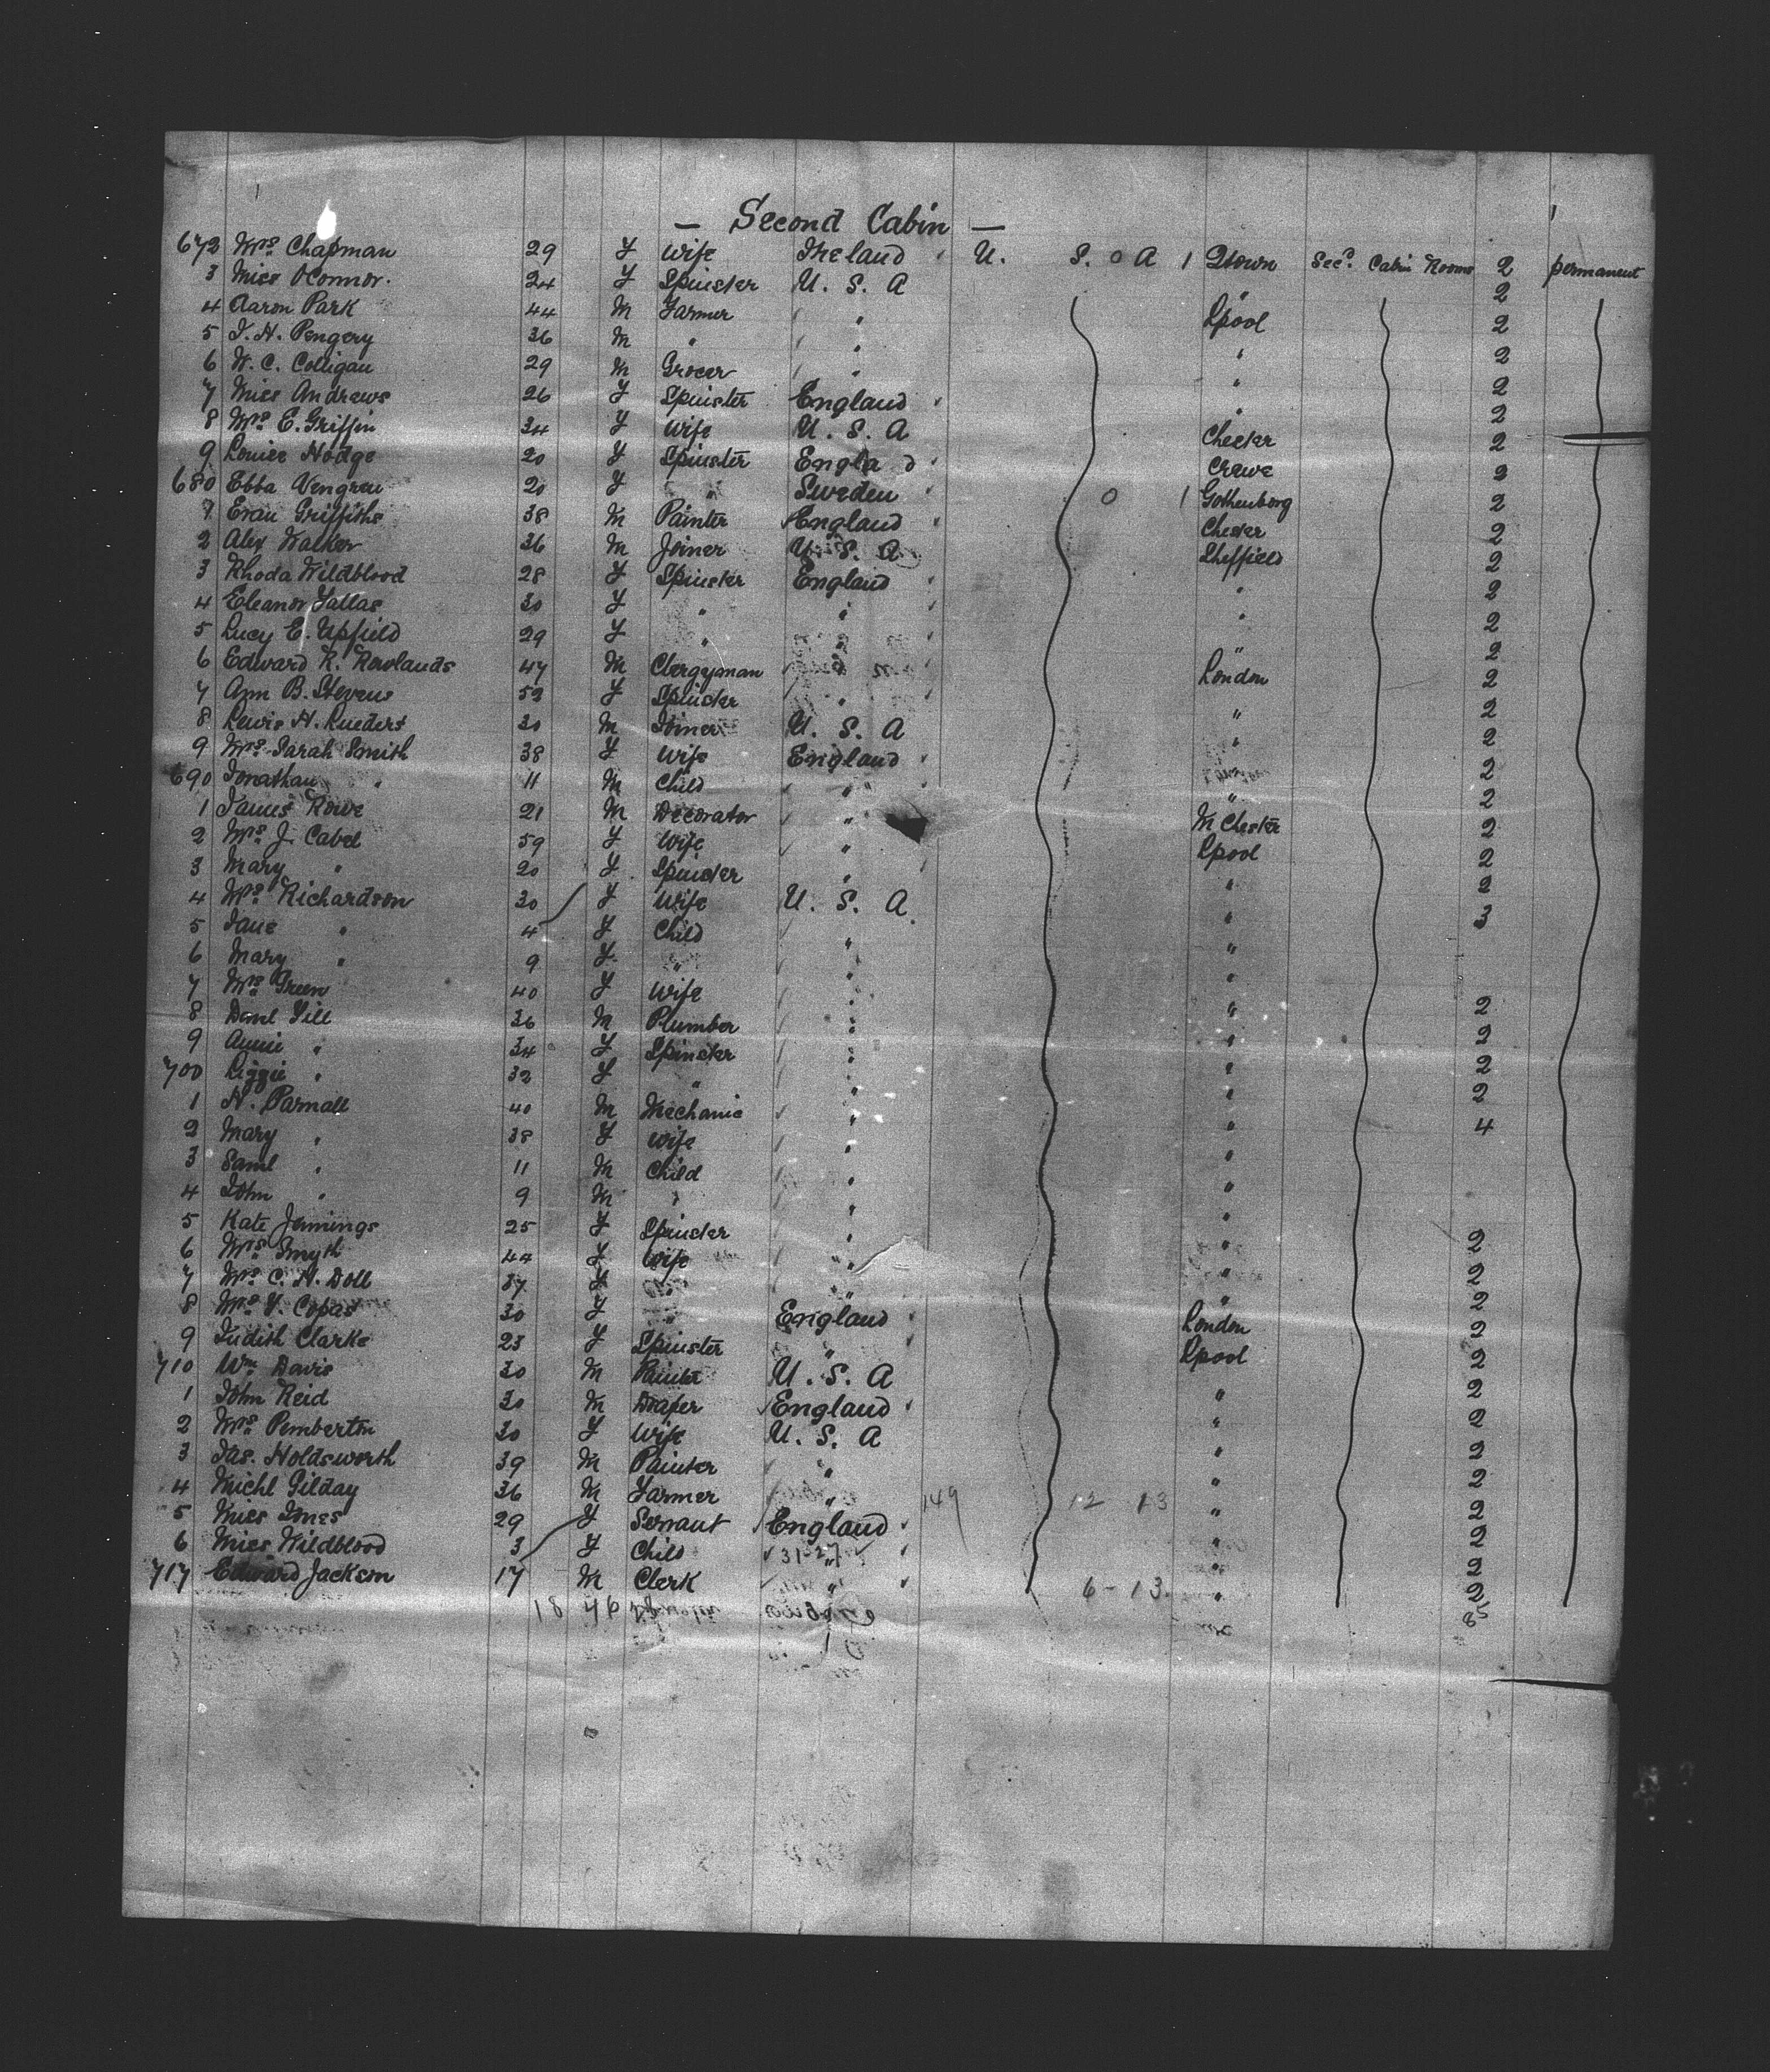 — Second Cabin —
672 Mrs Chapman 29 F Wife Ireland U. S. A 1 Qtown Sec. Cabin Rooms 2 permanent
3 Miss OConnor. 24 F Spinster U. S. A " 2
4 Aaron Park 44 M Farmer " Lpool 2
5 J. H. Pengery 36 M " " " 2
6 W. C. Colligan 29 M Grocer " " 2
7 Miss Andrews 26 F Spinster England " 2
8 Mrs E. Griffin 34 F Wife U. S. A Chester 2
9 Louise Hodge 20 F Spinster England Crewe 2
680 Ebba Wengren 20 F " Sweden 0 1 Gothenborg 2
1 Evan Griffiths 38 M Painter England Chester 2
2 Alex Walker 36 M Joiner U. S. A Sheffield 2
3 Rhoda Wildblood 28 F Spinster England " 2
4 Eleanor Fallas 30 F " " " 2
5 Lucy E. Upfield 29 F " " " 2
6 Edward R. Rowlands 47 M Clergyman " London 2
7 Ann B. Stevens 52 F Spinster " " 2
8 Lewis H. Luedert 30 M Joiner U. S. A " 2
9 Mrs Sarah Smith 38 F Wife England 2
690 Jonathan " 11 M Child " " 2
1 James Rowe 21 M Decorator " M Chester 2
2 Mrs J. Cabel 59 F Wife " Lpool 2
3 Mary " 20 F Spinster " " 2
4 Mrs Richardson 30 F Wife U. S. A. " 3
5 Jane " 4 F Child " "
6 Mary " 9 F " " "
7 Mrs Green 40 F Wife " " 2
8 Danl Gill 36 M Plumber " " 2
9 Annie " 34 F Spinster " " 2
700 Lizzie " 32 F " " " 2
1 H. Parnall 40 M Mechanic " " 4
2 Mary " 38 F Wife " "
3 Saml " 11 M Child " "
4 John " 9 M " " "
5 Kate Jennings 25 F Spinster " " 2
6 Mrs Smyth 44 F Wife " " 2
7 Mrs C. H. Doll 37 F " " 2
8 Mrs Y. Copas 30 F " England London 2
9 Judith Clarke 23 F Spinster " Lpool 2
710 Wm Davis 30 M Painter U. S. A " 2
1 John Reid 30 M Draper England " 2
2 Mrs Pemberton 30 F Wife U. S. A " 2
3 Jas. Holdsworth 39 M Painter " " 2
4 Michl Gilday 36 M Farmer " 149 12 13 " 2
5 Miss Jones 29 F Servant England " 2
6 Miss Wildblood 3 F Child 31-27 " " 2
717 Edward Jackson 17 M Clerk " 6-13 " 2
18 46 85